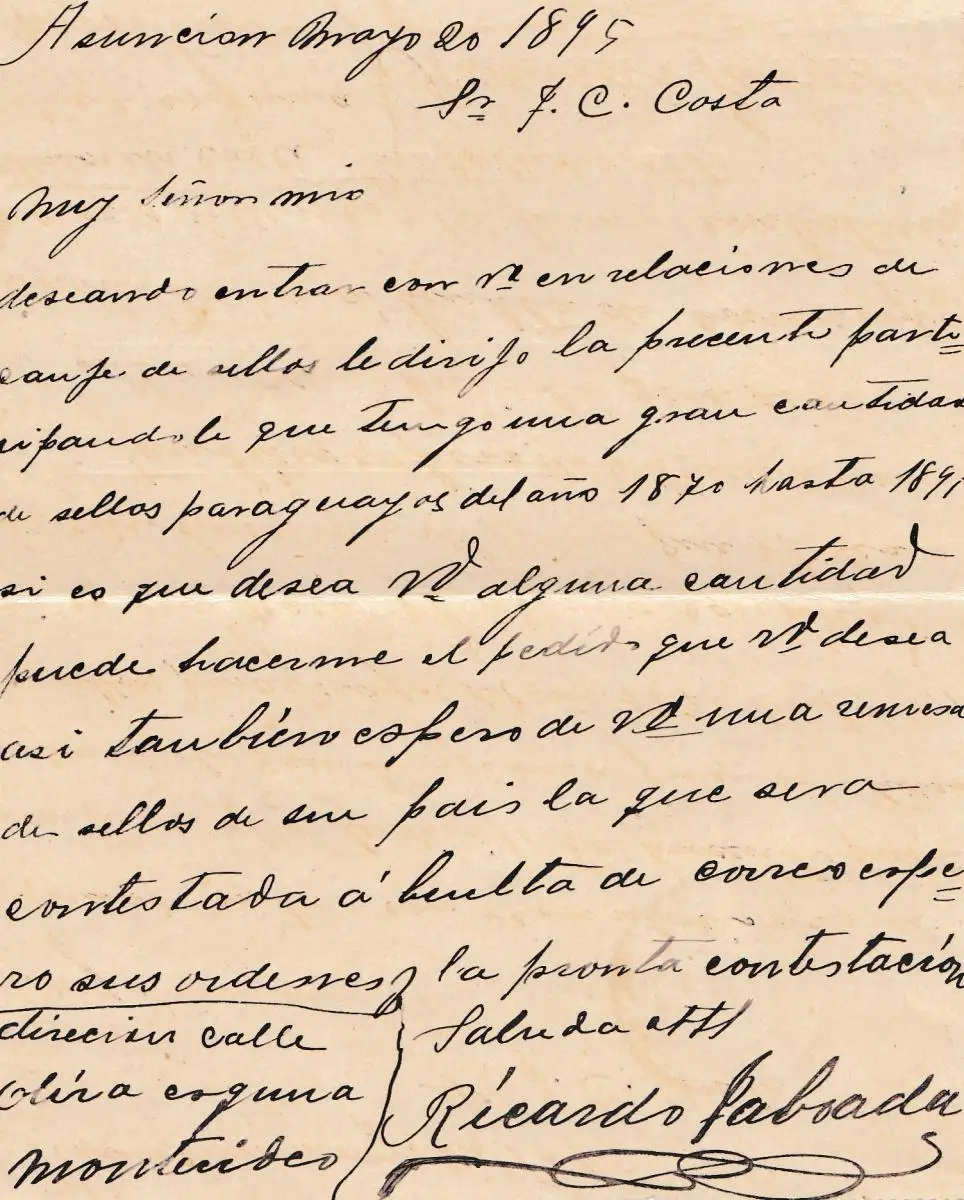 Asuncion Mayo 20 1895
Sr. J. C. Costa
Muy señor mio
deseando entrar con Vd en relaciones de
canje de sellos le dirijo la precente parti=
cipandole que tengo una gran cantidad
de sellos paraguayos del año 1870 hasta 189
si es que desea Vd alguna cantidad
puede hacerme el pedido que Vd desea
asi tanbién espero de Vd una remesa
de sellos de su pais la que sera
contestada á buelta de correo espe=
ro sus ordenes y la pronta contestación
direcion calle
Oliva esquna
Montevideo
Saluda atte
Ricardo Taboada